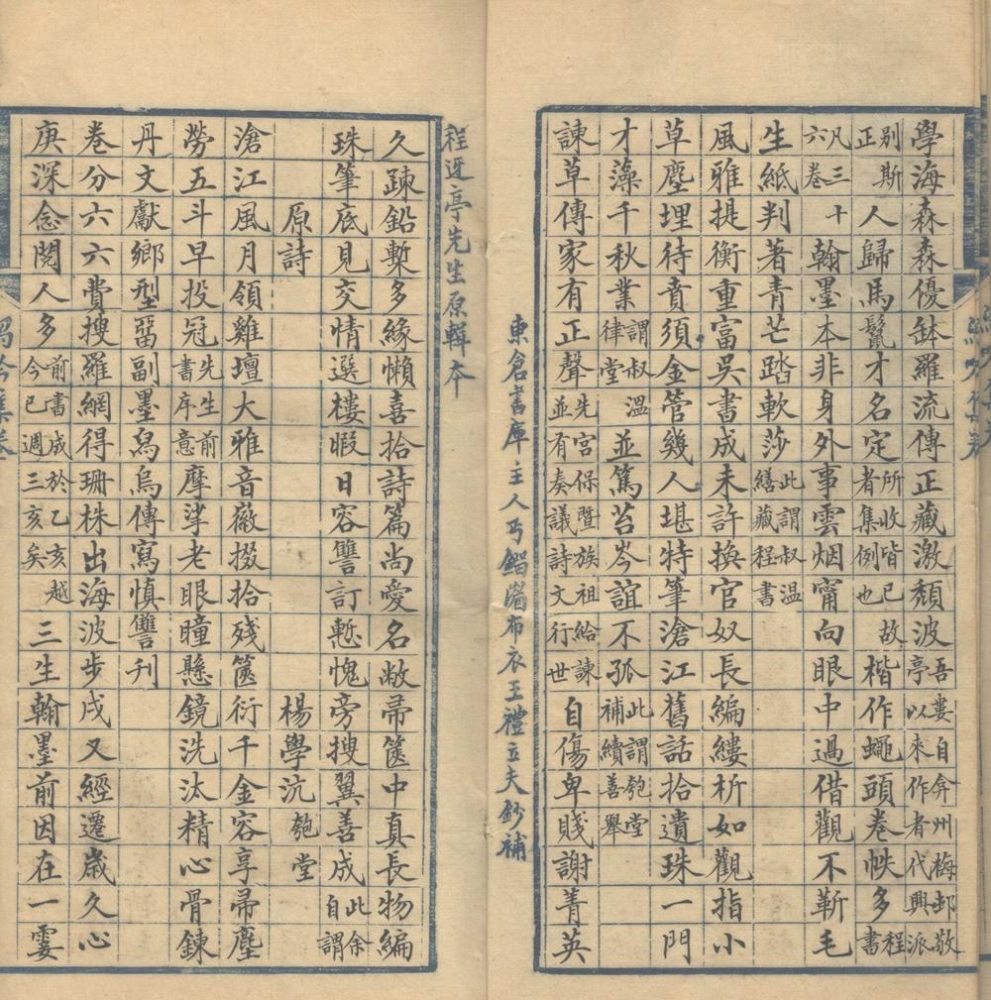 學海森森優鉢羅流傳正藏激頹波吾婁自弇州梅邨敬亭以來作者代興派
別斯正人歸馬鬣才名定所收皆已故者集例也楷作蠅頭卷帙多程書
凡三十六卷翰墨本非身外事雲烟甯向眼中過借觀不靳毛
生紙判著青芒踏軟莎此謂叔温繕藏程書
風雅提衡重富吳書成未許換官奴長編縷析如觀指小
草塵埋待賁須金管幾人堪特筆滄江舊話拾遺珠一門
才藻千秋業謂叔温律堂並篤苔岑誼不孤此謂匏堂補續善舉
諫草傳家有正聲先宮保暨族祖給諫並有奏議詩文行世自傷卑賤謝菁英
東倉書庫主人丏布衣王禮立夫鈔補
程迓亭先生原輯本
久疎鉛槧多緣懶喜拾詩篇尚愛名敝帚篋中真長物編
珠筆底見交情選樓暇日容讐訂慙愧旁搜翼善成此余自謂
原詩 楊學沆匏堂
滄江風月領雞壇大雅音徽掇拾殘篋衍千金容享帚塵
勞五斗早投冠先生前書序意摩挲老眼瞳懸鏡洗汰精心骨鍊
丹文獻鄉型畱副墨寫烏傳寫慎讐刊
卷分六六費搜羅網得珊株出海波步戌又經遷歲久心
庚深念閱人多前書成於乙亥越今已週三亥矣三生翰墨前因在一霎